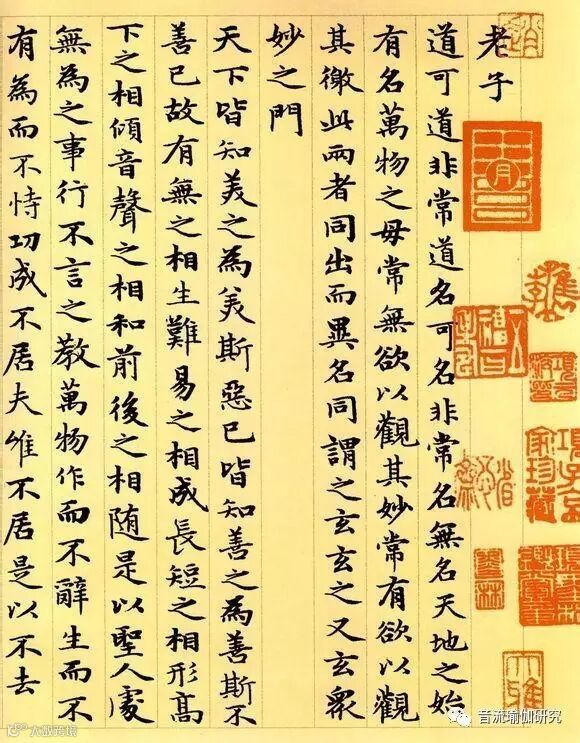 老子
道可道非常道名可名非常名無名天地之始
有名萬物之母常無欲以觀其妙常有欲以觀
其徼此兩者同出而異名同謂之玄玄之又玄眾
妙之門
天下皆知美之為美斯惡已皆知善之為善斯不
善已故有無之相生難易之相成長短之相形髙
下之相傾音聲之相和前後之相随是以聖人處
無為之事行不言之教萬物作而不辭生而不
有為而不恃功成不居夫唯不居是以不去
項子京
家珍藏
墨林
音流瑜伽研究
大数跨境